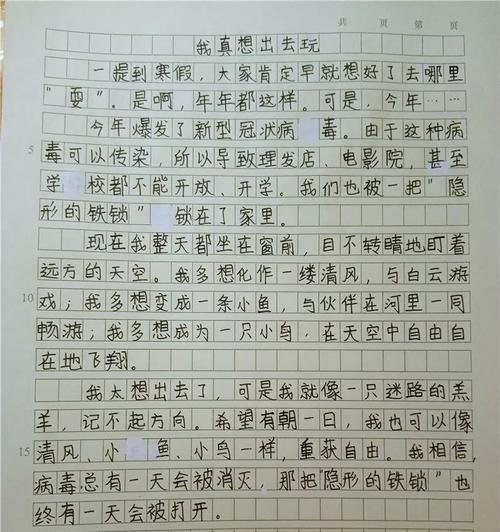 共 页 第 页
我真想出去玩
一提到寒假，大家肯定早就想好了去哪里
“耍”。是啊，年年都这样。可是，今年……
今年爆发了新型冠状病毒。由于这种病
5
毒可以传染，所以导致理发店、电影院，甚至
学校都不能开放、开学。我们也被一把“隐
形的铁锁”锁在了家里。
现在我整天都坐在窗前，目不转睛地盯着
远方的天空。我多想化作一缕清风，与白云游
10
戏；我多想变成一条小鱼，与伙伴在河里一同
畅游；我多想成为一只小鸟，在天空中自由自
在地飞翔。
我太想出去了，可是我就像一只迷路的羔
羊，记不起方向。希望有朝一日，我也可以像
15
清风、小鱼、小鸟一样，重获自由。我相信，
病毒总有一天会被消灭，那把“隐形的铁锁”也
终有一天会被打开。